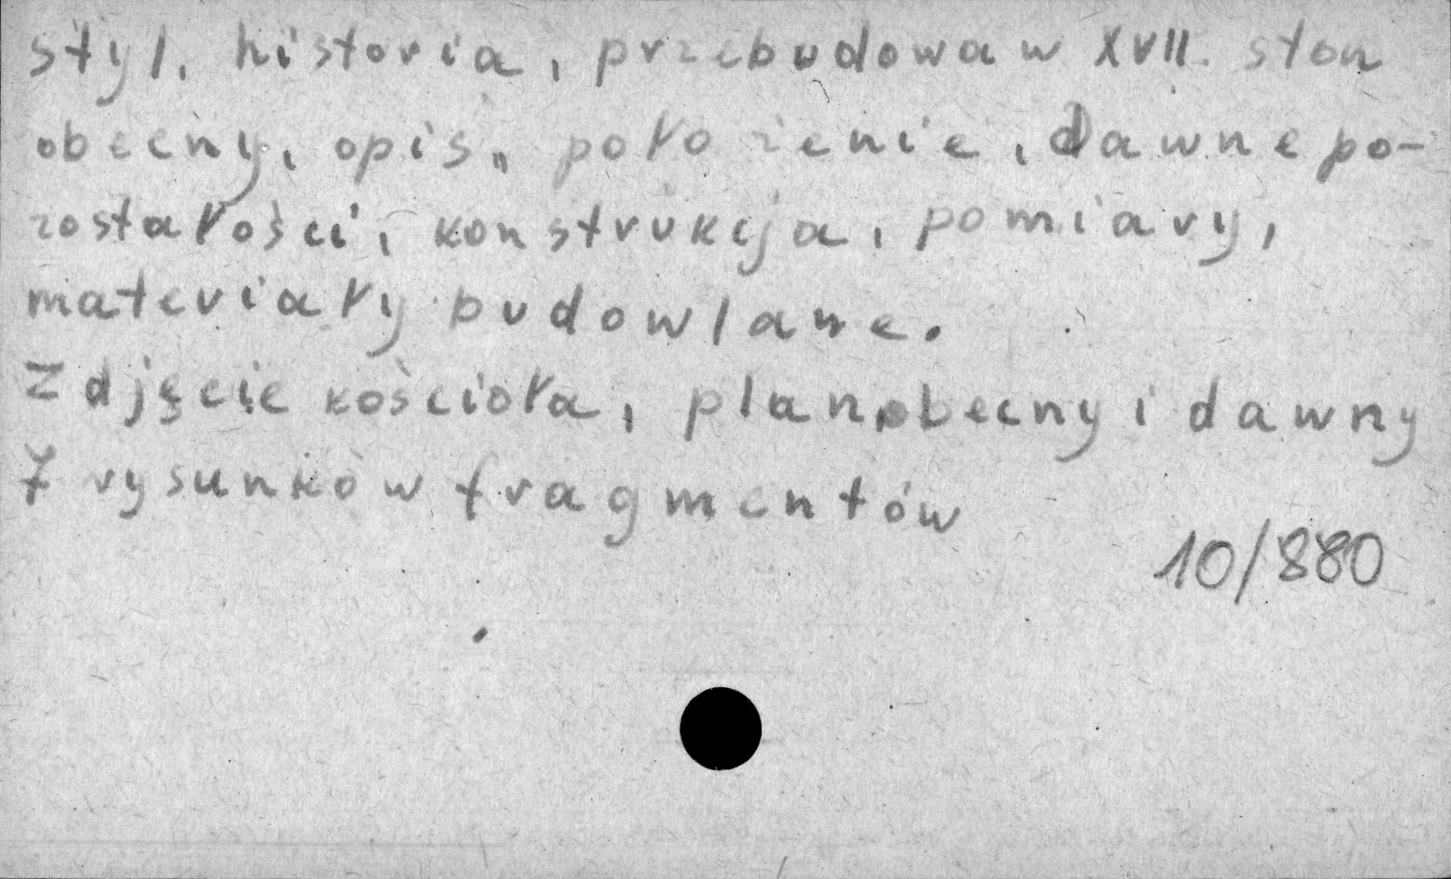 styl, historia, przebudowa w XVII. stan
obecny, opis,, położenie, dawne po-
zostałości, konstrukcja, pomiary,
materiały budowlane.
Zdjęcie kościoła, plan obecny i dawny
7 rysunków fragmentów
10/880